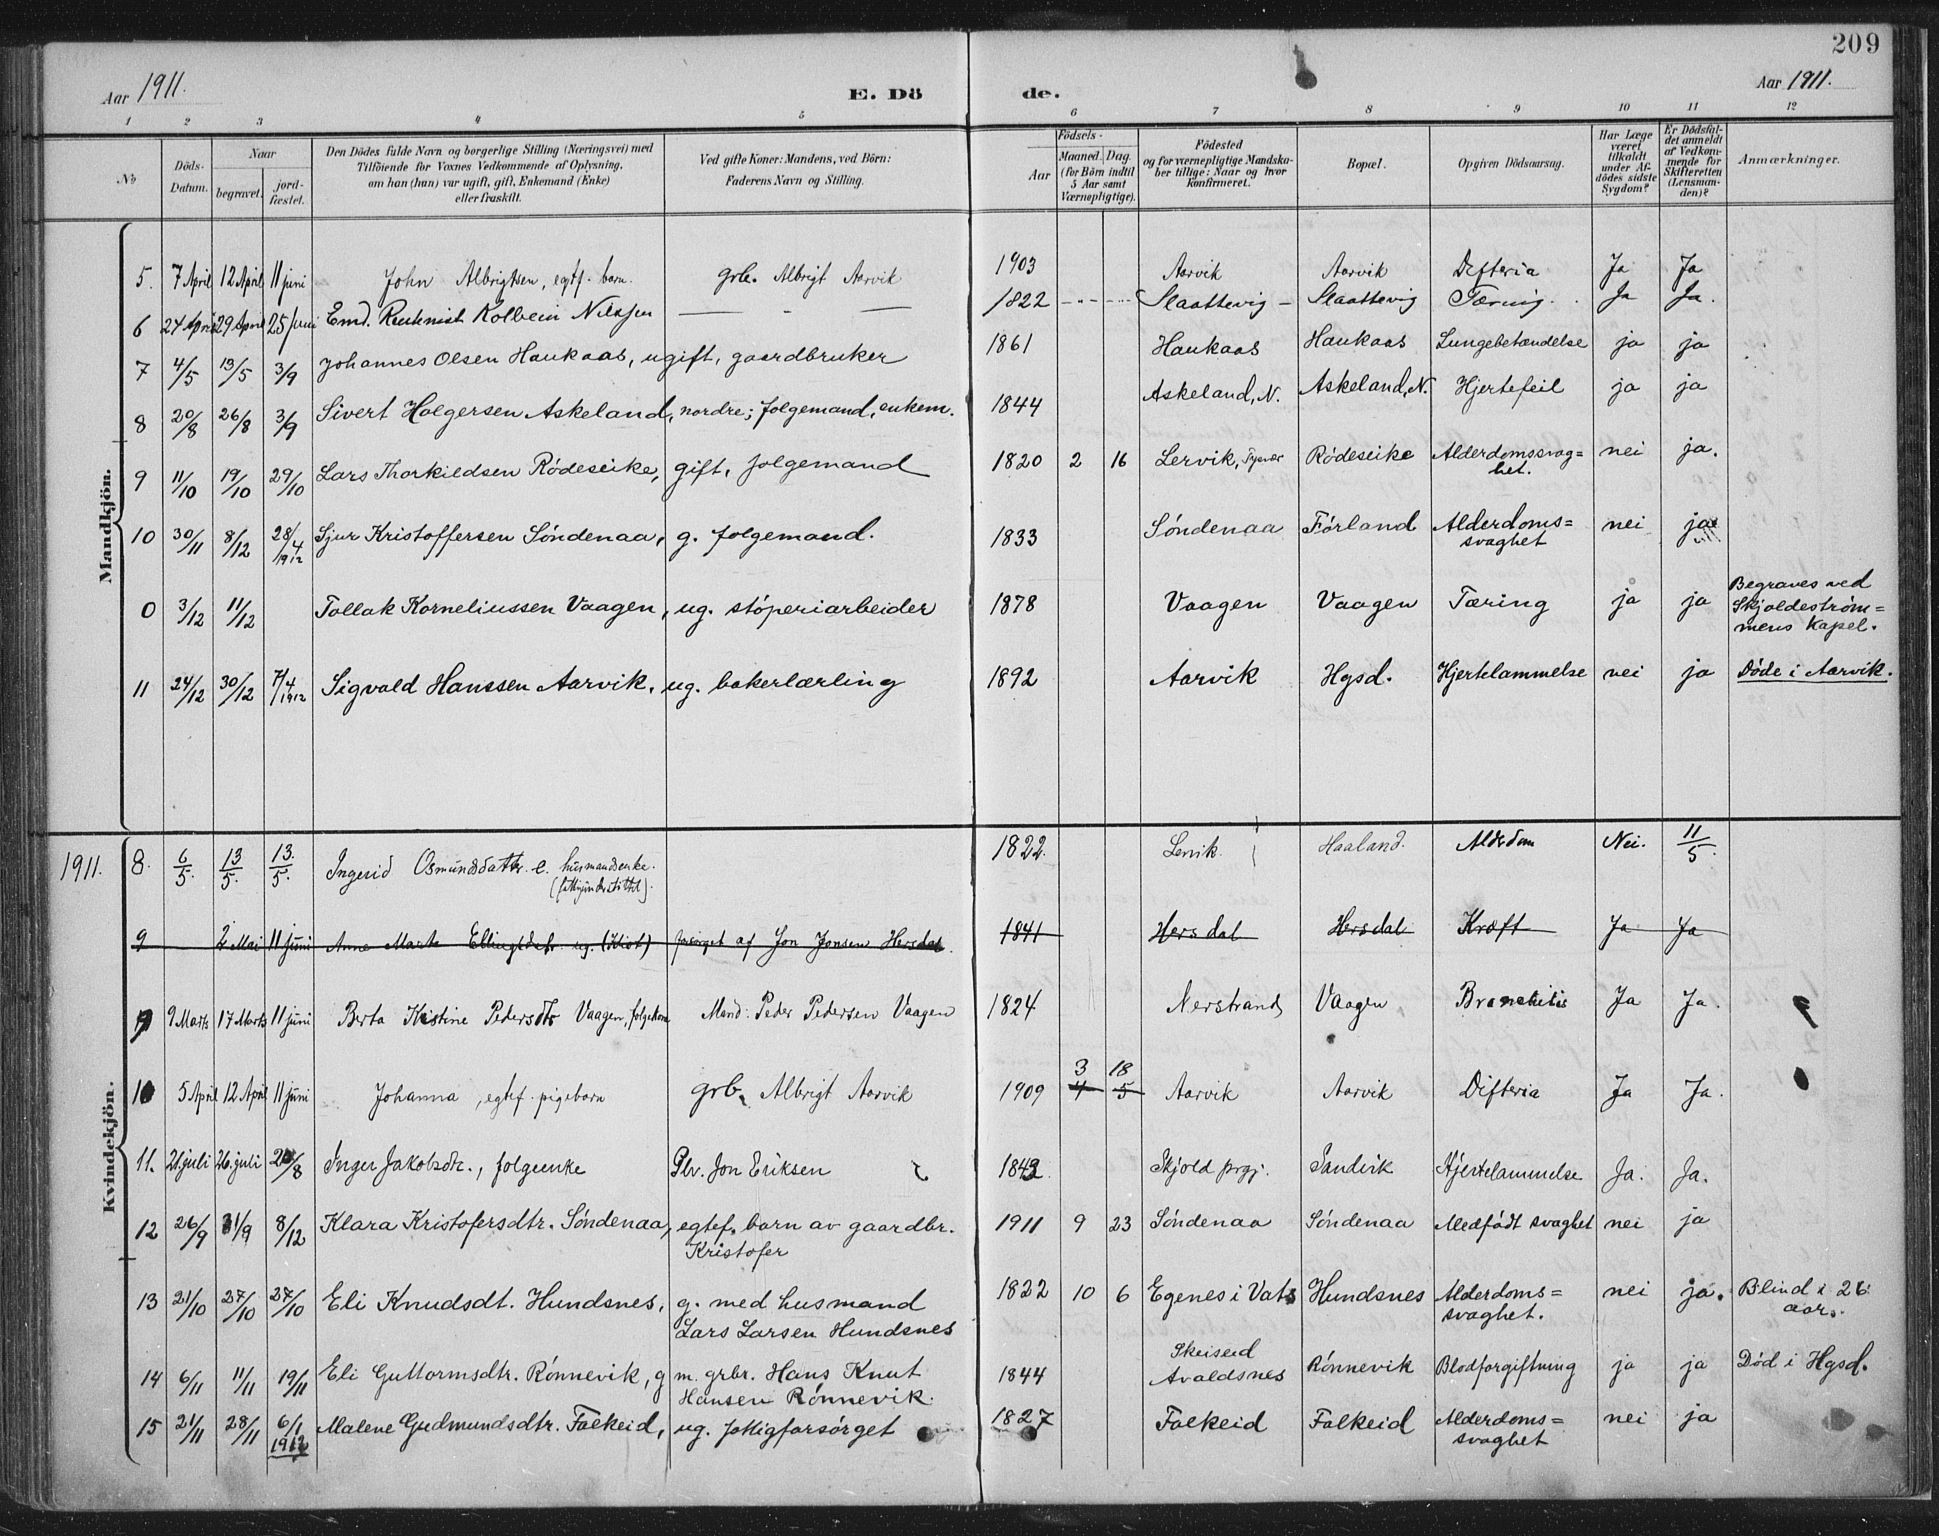 209
Aar 1911.
E. Dö
de.
Aar 1911.
1 2 3 4 5 6 7 8 9 10 11 12
No
Döds-Datum.
Naar
begravet.
jord-fæstet.
Den Dödes fulde Navn og borgerlige Stilling (Næringsvei) med
Tilföiende for Voxnes Vedkommende af Oplysning,
om han (hun) var ugift, gift, Enkemand (Enke)
eller fraskilt.
Ved gifte Koner: Mandens, ved Börn:
Faderens Navn og Stilling.
Födsels-
Aar
Maaned. Dag.
(for Börn indtil
5 Aar samt
Værnepligtige).
Födested
og for værnepligtige Mandska-
ber tillige: Naar og hvor
konfirmeret.
Bopæl.
Opgiven Dödsaarsag.
Har Læge
været
tilkaldt
under Af-
dödes sidste
Sygdom?
Er Dödsfal-
det anmeldt
af Vedkom-
mende for
Skifteretten
(Lensman-
den)?
Anmærkninger.
Mandkjön.
5. 7 April 12 April 11 juni John Albrigtsen, egtf. barn. grb. Albrigt Aarvik 1903 Aarvik Aarvik Difteria Ja Ja
6 24 April 29 April 25 juni Emd. Kolbein Nilssen 1822 Slaattevig Slaattevig Tæring. Ja Ja.
7 4/5 13/5 3/9 Johannes Olsen Haukaas, ugift, gaardbruker 1861 Haukaas Haukaas Lungebetændelse ja ja
8 20/8 26/8 3/9 Sivert Holgersen Askeland, nordre; folgemand, enkem. 1844 Askeland, N. Askeland, N. Hjertefeil ja ja
9 11/10 19/10 29/10 Lars Thorkildsen Rödeseike, gift, folgemand 1820 2 16 Lervik, Tysvær Rödeseike Alderdomssvag=
het. nei ja.
10 30/11 8/12 28/4 1912 Sjur Kristoffersen Söndenaa, g. folgemand. 1833 Söndenaa Förland Alderdoms=
svaghet nei ja
0 3/12 11/12 Tollak Korneliussen Vaagen, ug. stöperiarbeider 1878 Vaagen Vaagen Tæring ja ja Begraves ved
Skjoldeström=
mens Kapel.
11 24/12 30/12 7/4 1912 Sigvald Hanssen Aarvik, ug. bakerlærling 1892 Aarvik Hgsd. Hjertelammelse nei ja Döde i Aarvik.
Kvindekjön.
1911. 8. 6/5. 13/5. 13/5. Ingerid Osmundsdatter. e. husmandsenke.
(fattigunderstöttet). 1822. Lervik. Haaland. Alderdom Nei. 11/5.
9 2 Mai 11 juni Anne Marta Ellingsdtr. ug. (Idiot) forsörget af Jon Jonsen Hersdal. 1841 Hersdal Hersdal Kræft Ja Ja
9 9 Marts 17 Marts 11 juni Berta Kristine Pedersdtr Vaagen, folgekone Mand: Peder Pedersen Vaagen 1824 Nerstrand Vaagen Bronchitis Ja Ja.
10 5 April 12 April 11 juni Johanna, egtef. pigebarn grb. Albrigt Aarvik 1909 3 18
4 5 Aarvik Aarvik Difteria Ja Ja.
11. 21. juli 26. juli Inger Jakobsdtr., folgeenke Plv. Jon Eriksen Skjold prgj. Sandvik Hjertelammelse Ja. Ja.
12 26/9 31/9 8/12 Klara Kristofersdtr. Söndenaa, egtef. barn av gaardbr.
Kristofer 1911 9 23 Söndenaa Söndenaa Medfödt svaghet nei ja
13 21/10 27/10 27/10 Eli Knudsdt. Hundsnes, g. med husmand
Lars Larsen Hundsnes 1822 10 6 Egenes i Vats Hundsnes Alderdoms=
svaghet. nei ja. Blind i 26
aar.
14 6/11 11/11 19/11 Eli Guttormsdtr. Rönnevik, g m. grbr. Hans Knut
Hansen Rönnevik. 1844 Skeiseid
Avaldsnes Rönnevik Blodforgiftning ja ja Död i Hgsd.
15 21/11 28/11 6/1 1912 Malene Gudmundsdtr. Falkeid, ug. fattigforsörget 1827 Falkeid Falkeid Alderdoms=
svaghet nei ja